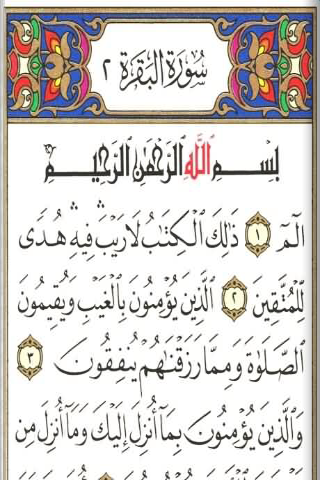 سُورَةُ الْبَقَرَةِ ٢
بِسْمِ اللَّهِ الرَّحْمَٰنِ الرَّحِيمِ
الٓمٓ ١ ذَٰلِكَ ٱلْكِتَٰبُ لَا رَيْبَ ۛ فِيهِ ۛ هُدًى
لِّلْمُتَّقِينَ ٢ ٱلَّذِينَ يُؤْمِنُونَ بِٱلْغَيْبِ وَيُقِيمُونَ
ٱلصَّلَوٰةَ وَمِمَّا رَزَقْنَٰهُمْ يُنفِقُونَ ٣
وَٱلَّذِينَ يُؤْمِنُونَ بِمَآ أُنزِلَ إِلَيْكَ وَمَآ أُنزِلَ مِن